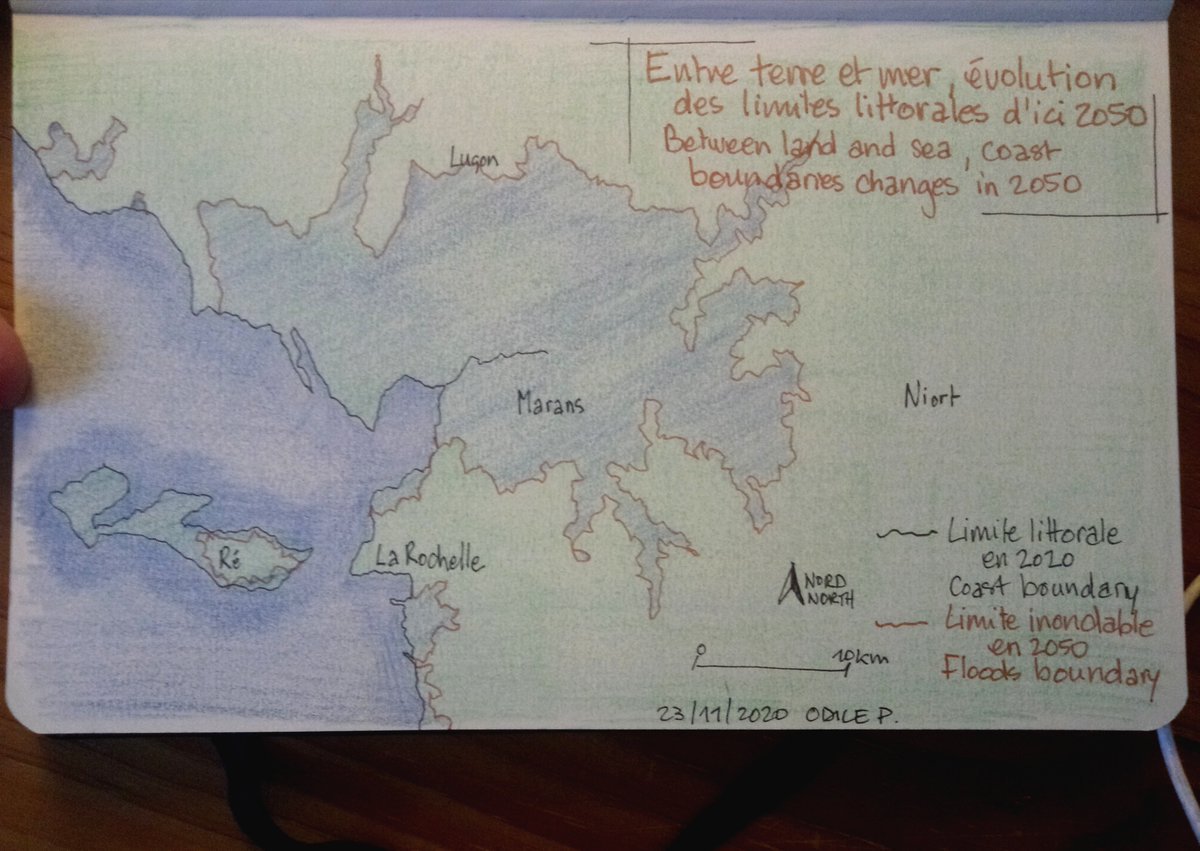 Entre terre et mer, évolution
des limites littorales d'ici 2050
Between land and sea, coast
boundaries changes in 2050
Luçon
Marans
Niort
Ré
La Rochelle
Limite littorale
en 2020
Coast boundary
NORD
NORTH
Limite inondable
en 2050
Floods boundary
0 10km
23/11/2020 ODILE P.